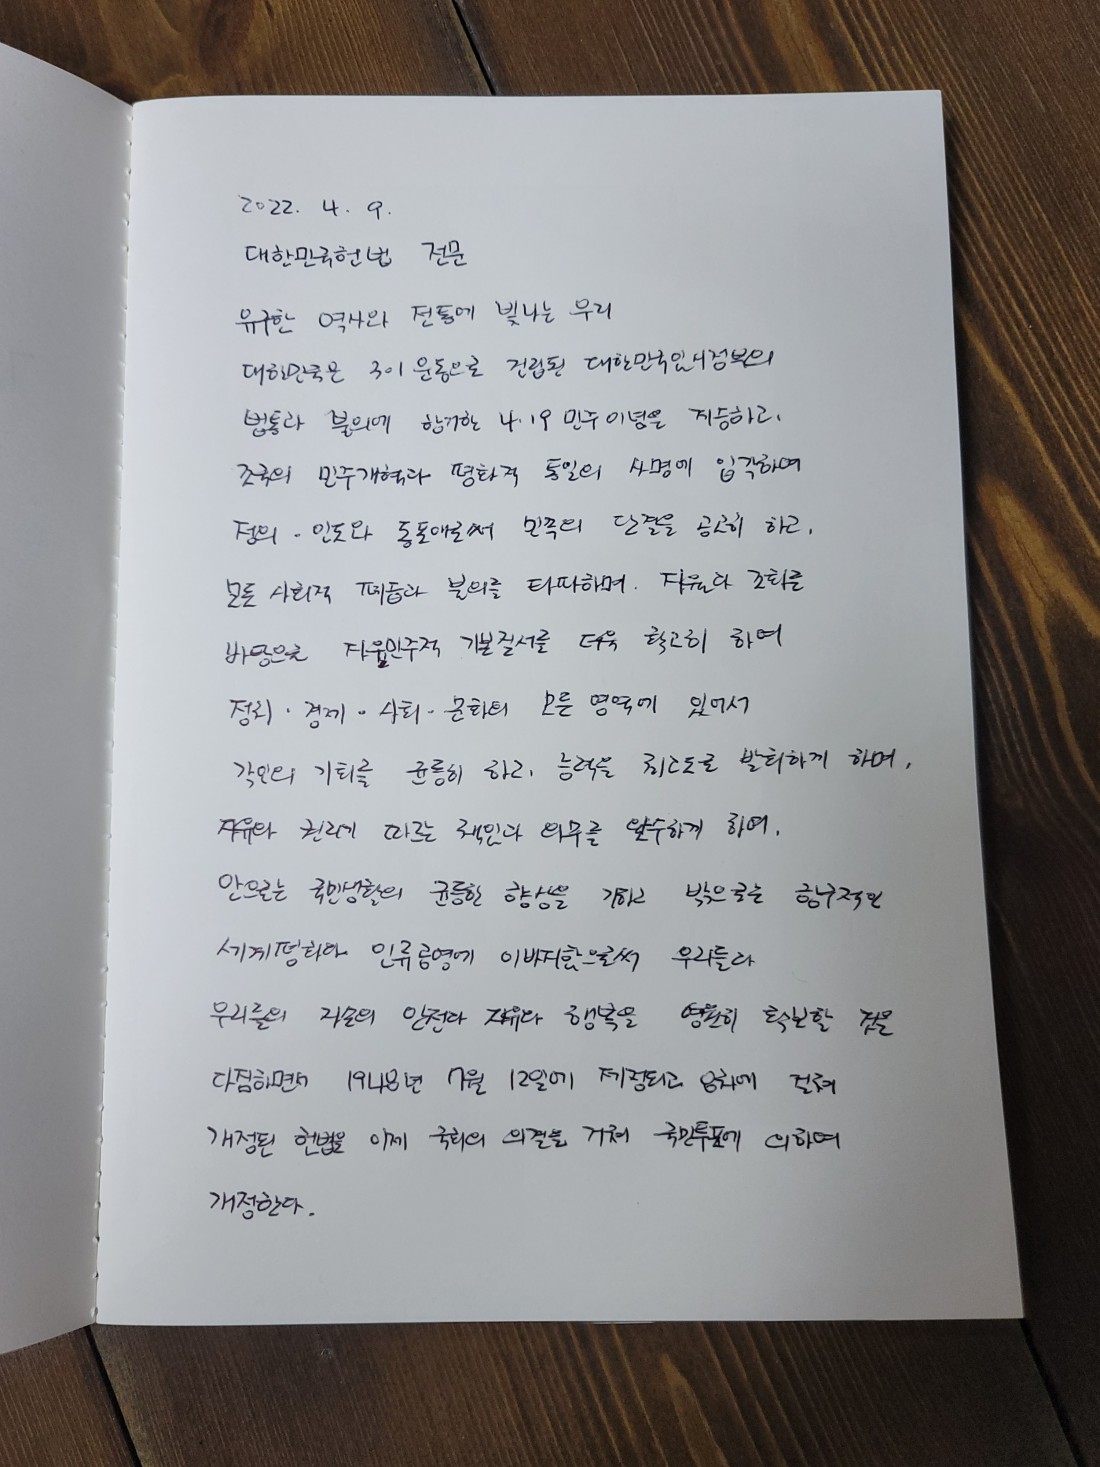 2022. 4. 9.
대한민국헌법 전문
유구한 역사와 전통에 빛나는 우리
대한민국은 3·1 운동으로 건립된 대한민국임시정부의
법통과 불의에 항거한 4.19 민주이념을 계승하고,
조국의 민주개혁과 평화적 통일의 사명에 입각하여
정의·인도와 동포애로써 민족의 단결을 공고히 하고,
모든 사회적 폐습과 불의를 타파하며, 자율과 조화를
바탕으로 자유민주적 기본질서를 더욱 확고히 하여
정치·경제·사회·문화의 모든 영역에 있어서
각인의 기회를 균등히 하고, 능력을 최고도로 발휘하게 하며,
자유와 권리에 따르는 책임과 의무를 완수하게 하여,
안으로는 국민생활의 균등한 향상을 기하고 밖으로는 항구적인
세계평화와 인류공영에 이바지함으로써 우리들과
우리들의 자손의 안전과 자유와 행복을 영원히 확보할 것을
다짐하면서 1948년 7월 12일에 제정되고 8차에 걸쳐
개정된 헌법을 이제 국회의 의결을 거쳐 국민투표에 의하여
개정한다.